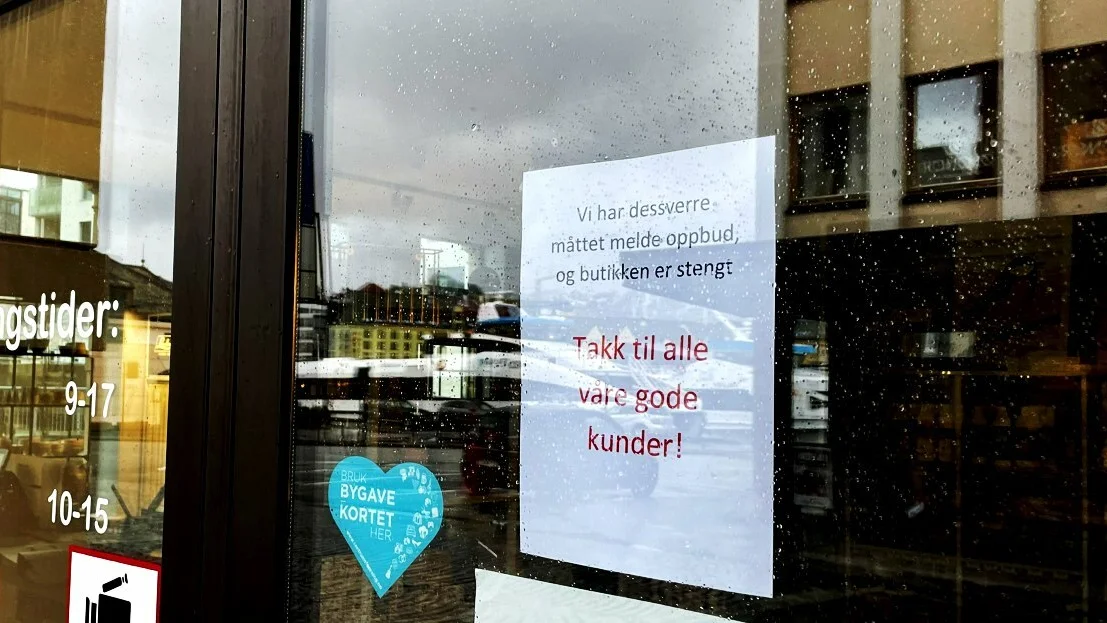 ngstider:
9-17
10-15
Vi har dessverre
måttet melde oppbud,
og butikken er stengt
Takk til alle
våre gode
kunder!
BRUK
BYGAVE
KORTET
HER